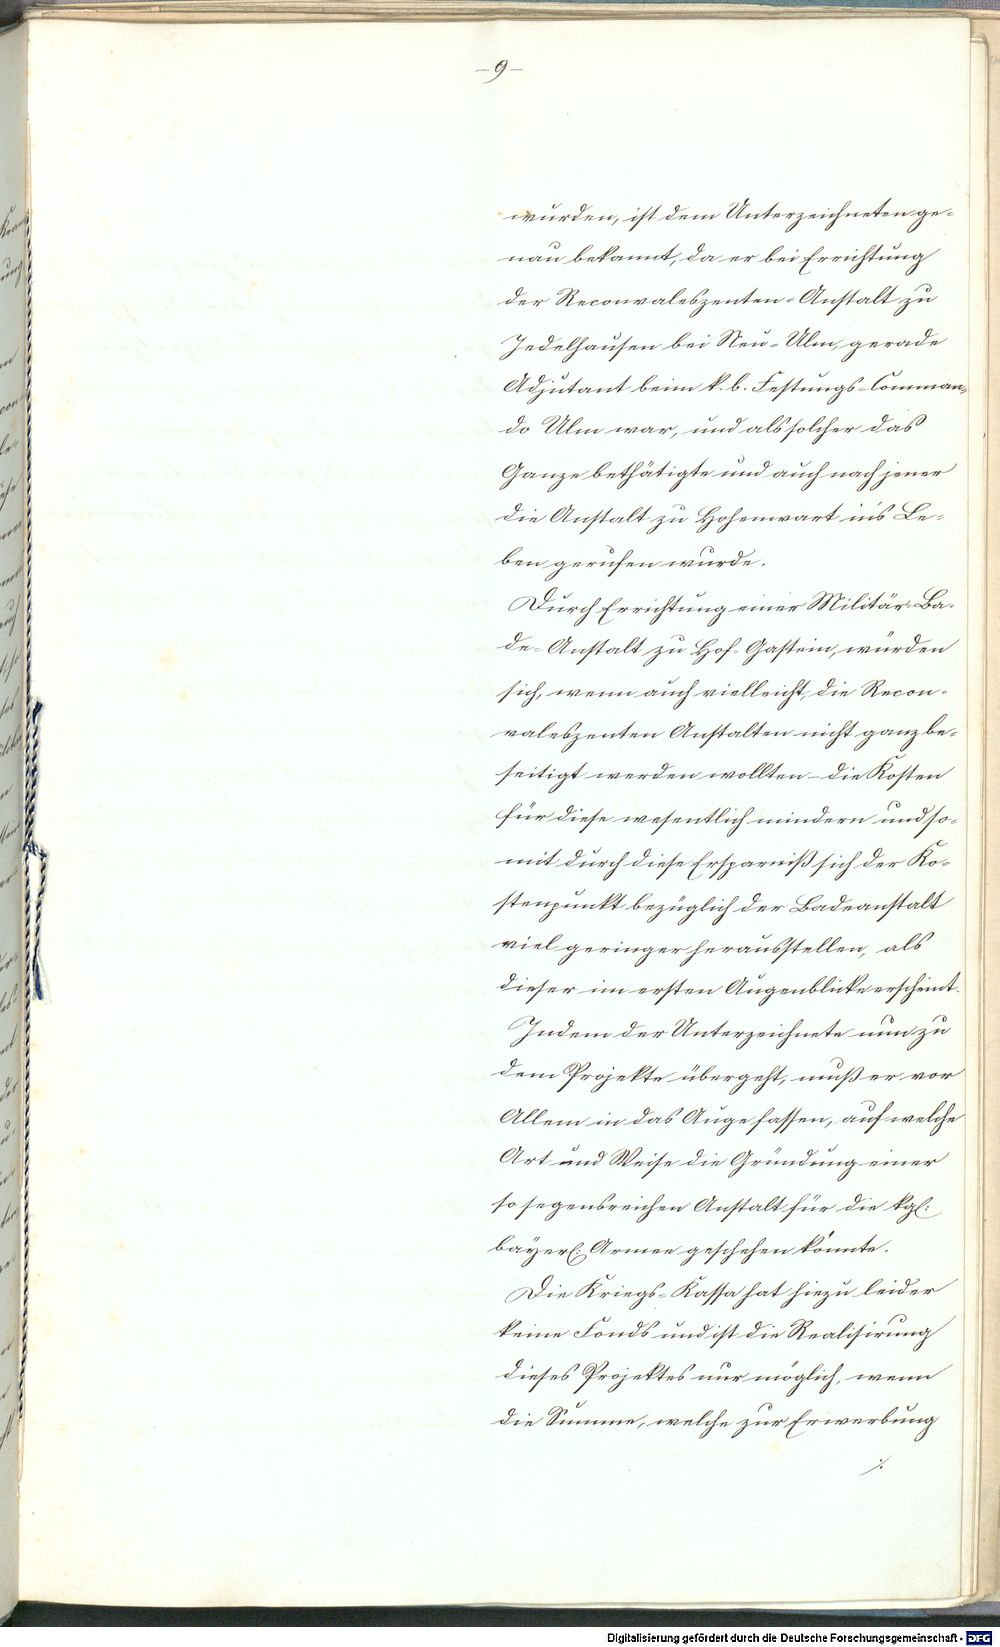 -9-
wurden, ist dem Unterzeichneten ge-
nau bekannt, da er bei Errichtung
der Reconvaleszenten-Anstalt zu
Jedelhausen bei Neu-Ulm, gerade
Adjutant beim k. b. Festungs-Comman-
do Ulm war, und als solcher das
Ganze bethätigte und auch nach jener
die Anstalt zu Hohenwart in's Le-
ben gerufen wurde.
Durch Errichtung einer Militär-Ba-
de-Anstalt zu Hof-Gastein, würden
sich, wenn auch vielleicht, die Recon-
valeszenten Anstalten nicht ganz be-
seitigt werden wollten – die Kosten
für diese wesentlich mindern und so-
mit durch diese Ersparniß sich der Ko-
stenpunkt bezüglich der Badeanstalt
viel geringer herausstellen, als
dieser im ersten Augenblicke erscheint.
Indem der Unterzeichnete nun zu
dem Projekte übergeht, muß er vor
Allem in das Auge fassen, auf welche
Art und Weise die Gründung einer
so segensreichen Anstalt für die kgl:
bayerl: Armee geschehen könnte.
Die Kriegs-Kassa hat hiezu leider
keine Fonds und ist die Realisirung
dieses Projektes nur möglich, wenn
die Summe, welche zur Erwerbung
./.
Digitalisierung gefördert durch die Deutsche Forschungsgemeinschaft - DFG